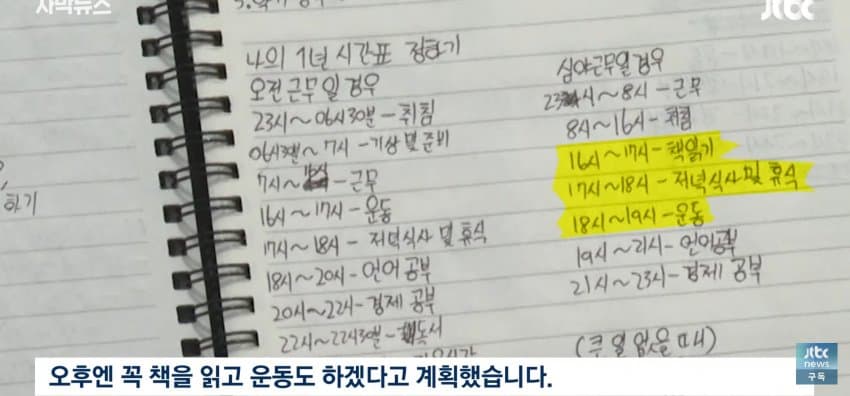 자막뉴스
jtbc
나의 1년 시간표 정하기
오전근무일 경우
23시~06시30분-취침
06시30분~7시-기상 및 준비
7시~ -근무
16시~17시-운동
17시~18시-저녁식사 및 휴식
18시~20시-언어 공부
20시~22시-경제 공부
22시~22시30분-독서
심야근무일 경우
23시~8시-근무
8시~16시-취침
16시~17시-책읽기
17시~18시-저녁식사 및 휴식
18시~19시-운동
19시~21시-언어공부
21시~23시-경제 공부
(큰 일 없을 때)
하기
오후엔 꼭 책을 읽고 운동도 하겠다고 계획했습니다.
jtbc
news
구독